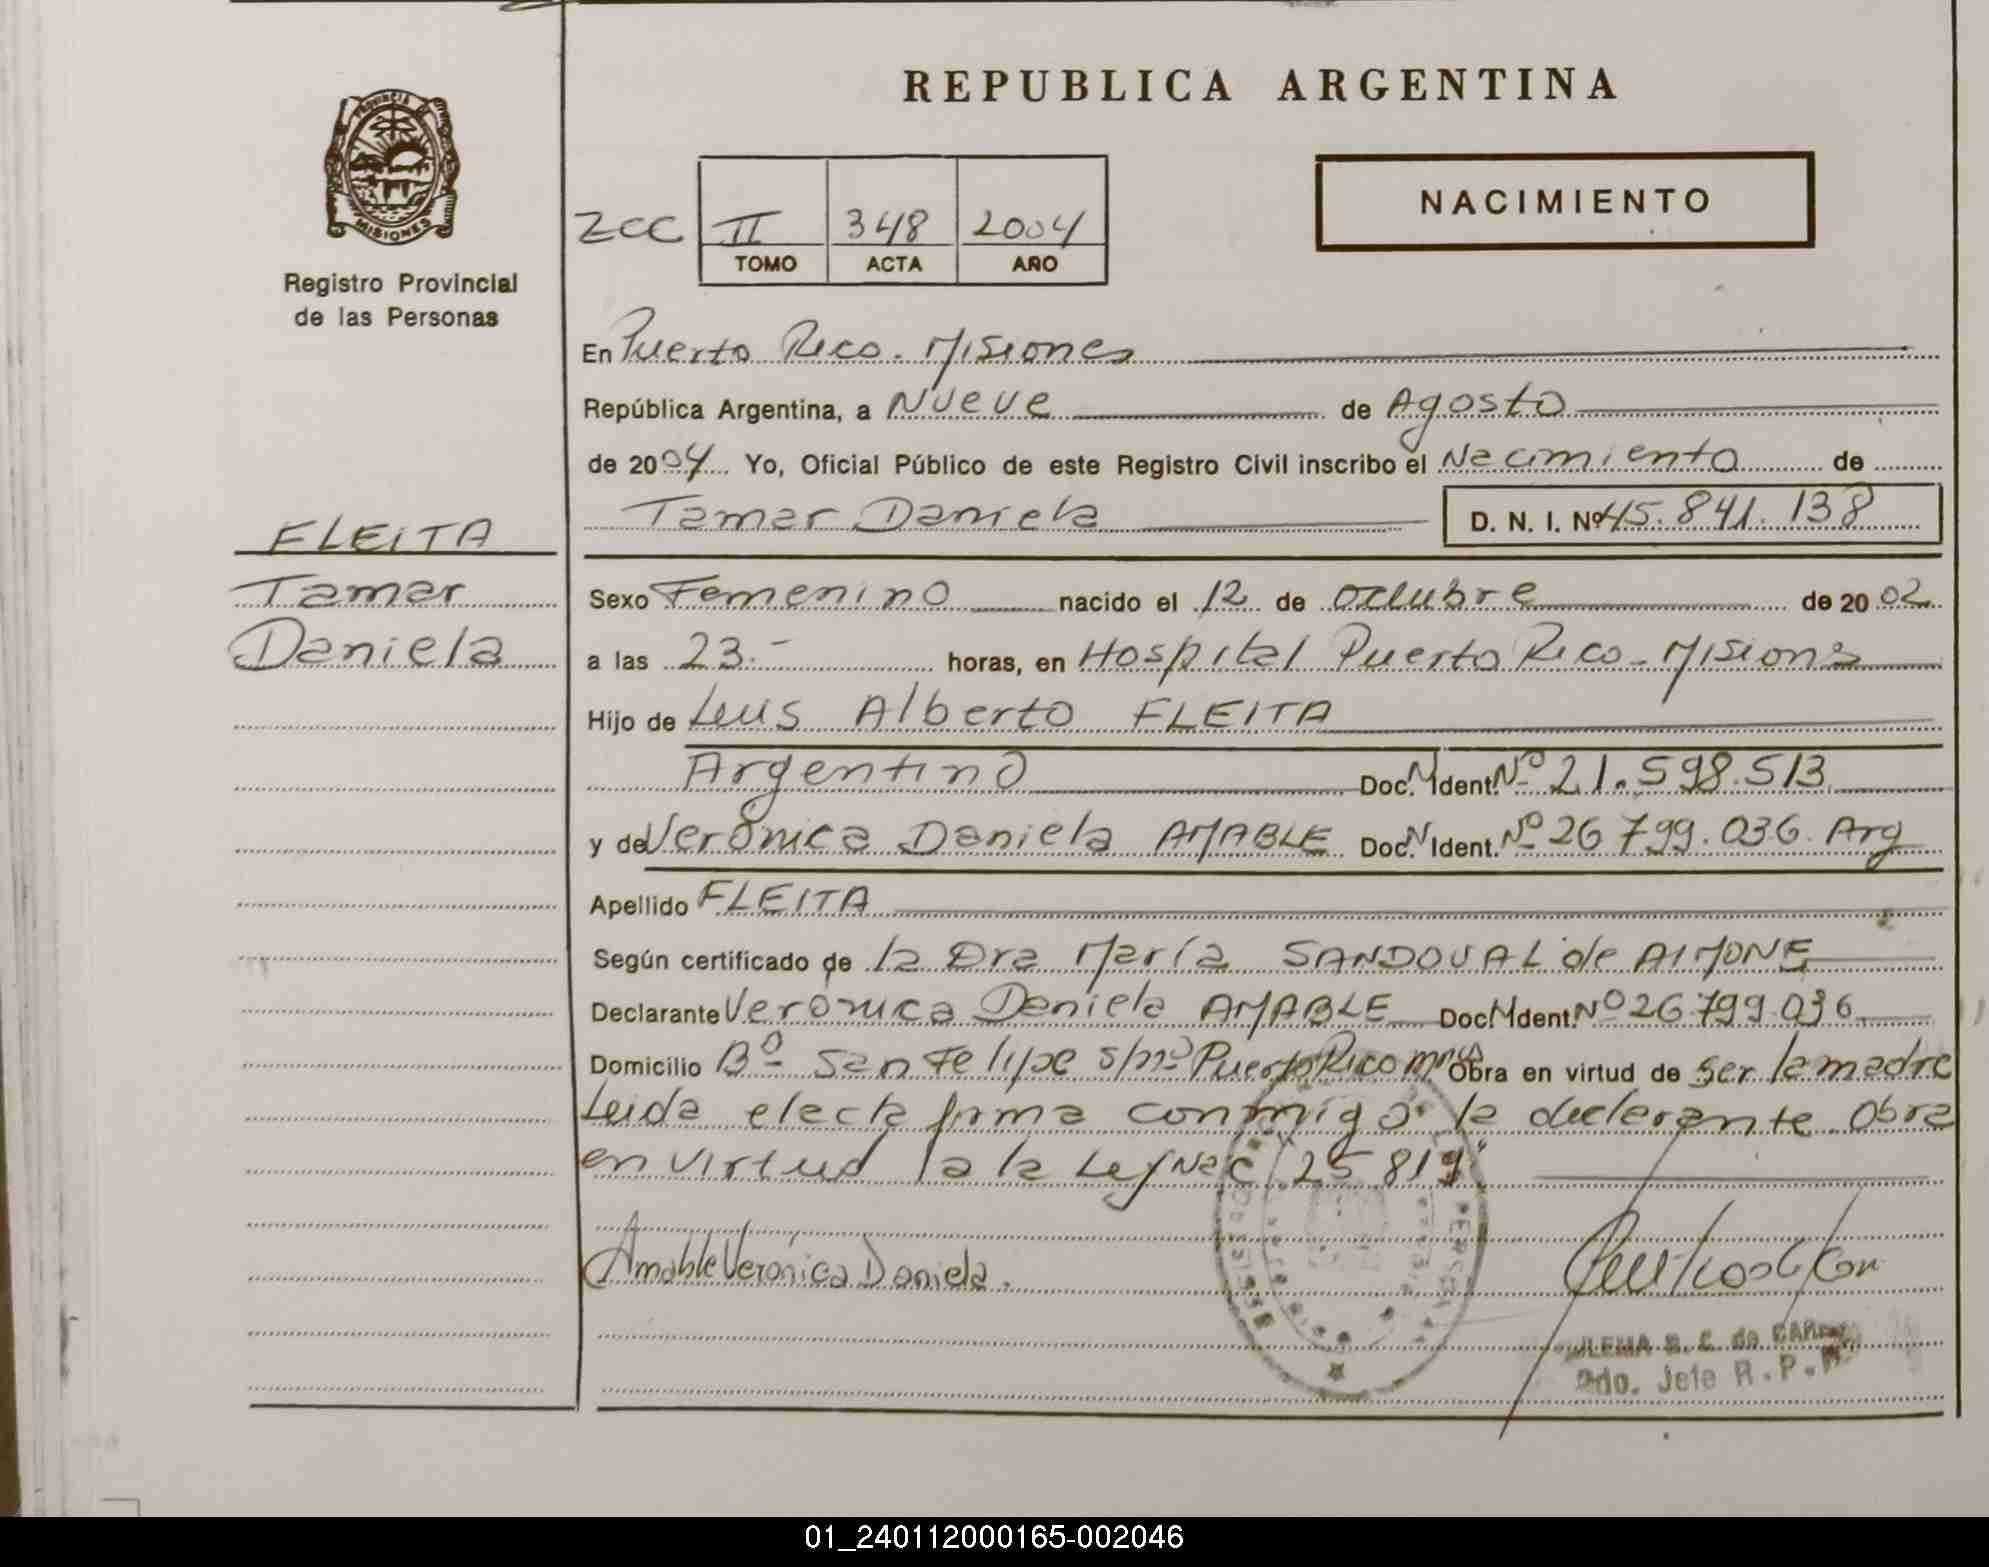 REPUBLICA ARGENTINA
PROVINCIA DE
MISIONES
Registro Provincial
de las Personas
NACIMIENTO
ZCC II 348 2004
TOMO ACTA AÑO
En Puerto Rico. Misiones
República Argentina, a Nueve de Agosto
de 2004 Yo, Oficial Público de este Registro Civil inscribo el Nacimiento de
Tamar Daniela D. N. I. Nº 45.841.138
FLEITA
Tamar
Daniela
Sexo Femenino nacido el 12 de octubre de 2002
a las 23.- horas, en Hospital Puerto Rico - Misiones
Hijo de Luis Alberto FLEITA
Argentino Doc. N Ident. Nº 21.598.513
y de Verónica Daniela AMABLE Doc. N Ident. Nº 26 799.036. Arg
Apellido FLEITA
Según certificado de la Dra María SANDOVAL de AIMONE
Declarante Verónica Daniela AMABLE Doc N Ident. Nº 26 799.036
Domicilio Bº San Felipe s/nº Puerto Rico Mnes Obra en virtud de ser la madre
Leida el acta firma conmigo la declarante Obra
en virtud a la Ley Nac 25 819
Amable Verónica Daniela.
B. C. de
Jefe R. P.
01_240112000165-002046